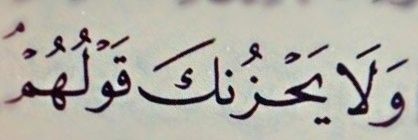 وَلَا يَحْزُنكَ قَوْلُهُمْ